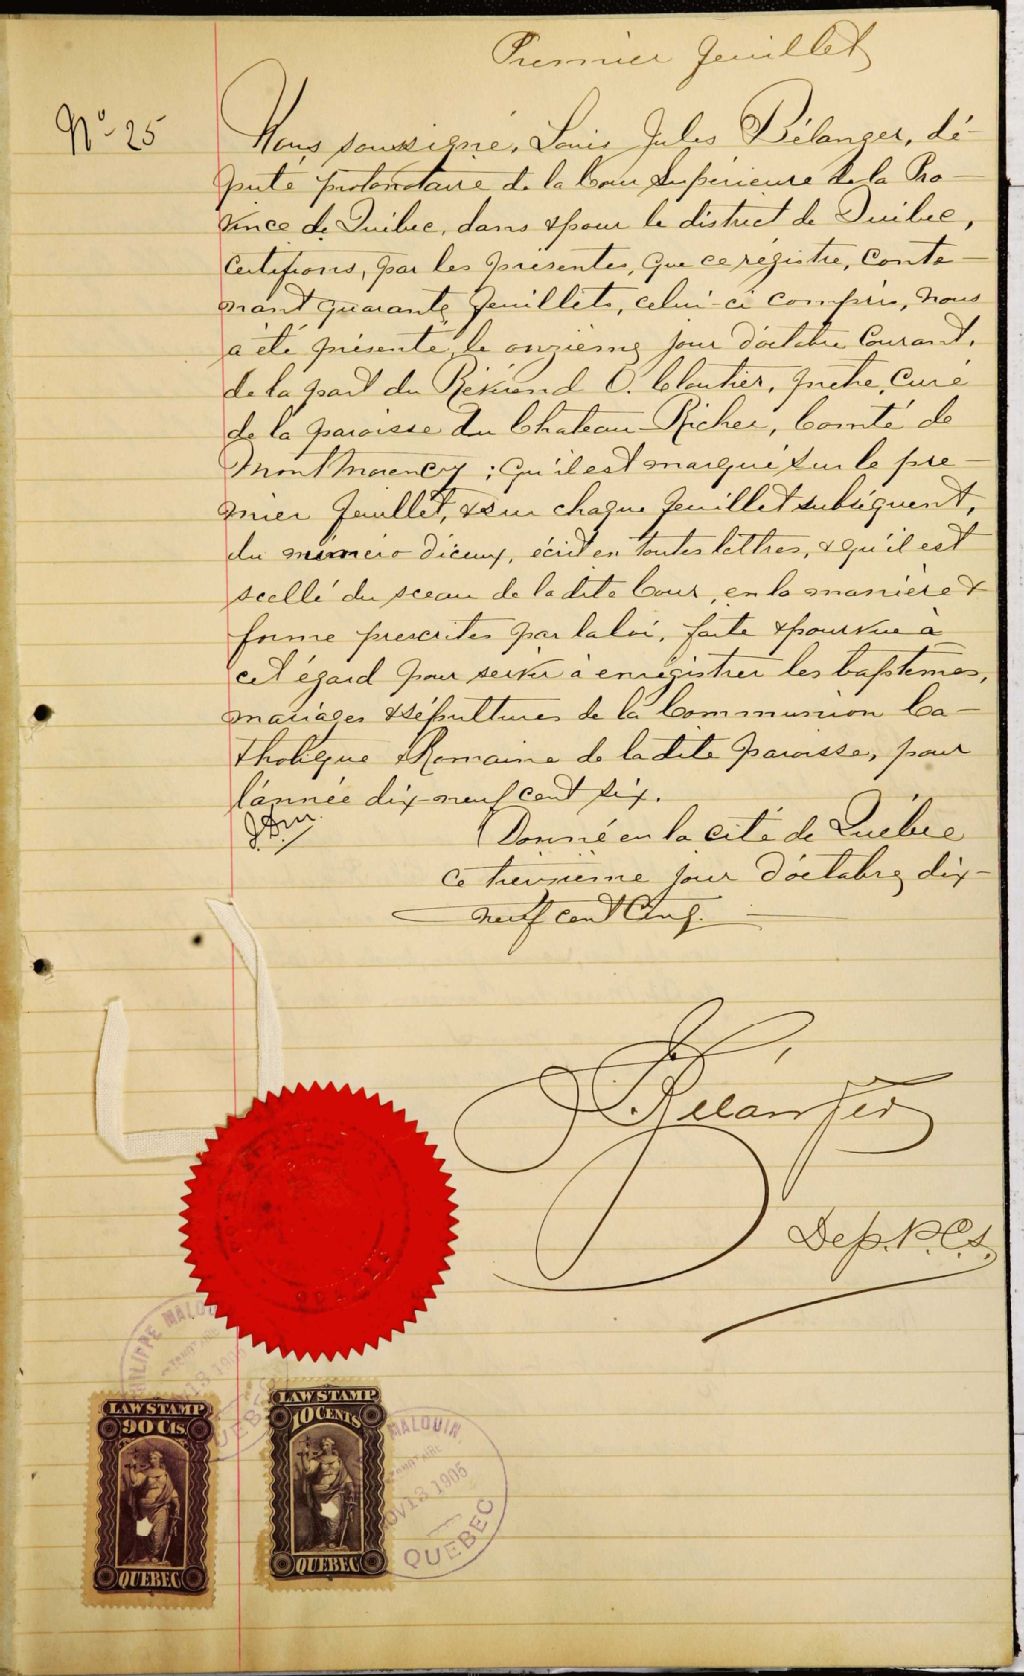 Premier feuillet
No. 25
Nous soussigné, Louis Jules Bélanger, dé-
puté protonotaire de la Cour Supérieure de la Pro-
vince de Québec, dans & pour le district de Québec,
certifions, par les présentes, que ce régistre, conte-
nant quarante feuillets, celui-ci compris, nous
a été présenté, le onzième jour d'octobre courant,
de la part du Révérend O. Cloutier, prêtre, Curé
de la paroisse du Chateau-Richer, Comté de
Montmorency; qu'il est marqué sur le pre-
mier feuillet, & sur chaque feuillet subséquent,
du numéro d'iceux, écrit en toutes lettres, & qu'il est
scellé du sceau de la dite Cour, en la manière &
forme prescrites par la loi, faite & pourvue à
cet égard pour servir à enrégistrer les baptêmes,
mariages & sépultures de la Communion Ca-
tholique & Romaine de la dite paroisse, pour
l'année dix-neuf cent six.
Donné en la cité de Québec
ce treizième jour d'octobre dix-
neuf cent cinq.
Bélanger
Dep. P.C.S.
PHILIPPE MALOUIN
1905
QUEBEC
LAW STAMP
90 Cts.
QUEBEC
LAW STAMP
10 CENTS
QUEBEC
MALOUIN
NOV 13 1905
QUEBEC